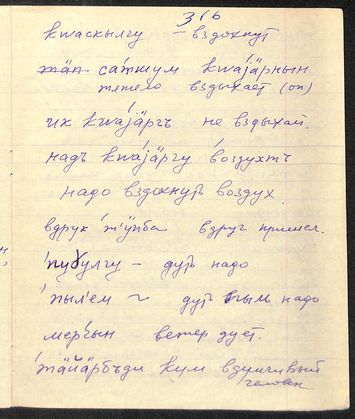 316
кწаскылгу – вздохнут
сäтшум кwаjäрнын
тяжело вздыхает (он)
ик кwаjäргъ не вздыхай.
надъ кwаjäргу воздухтъ
надо вздохнуть воздух
вдрук т'ӱнба вдруг пришел.
пуɣулгу – дуть надо
пыл'ем ~ дуть пыль надо
мерчын ветер дует.
тäйäрбъди кум вдумчивый
человек